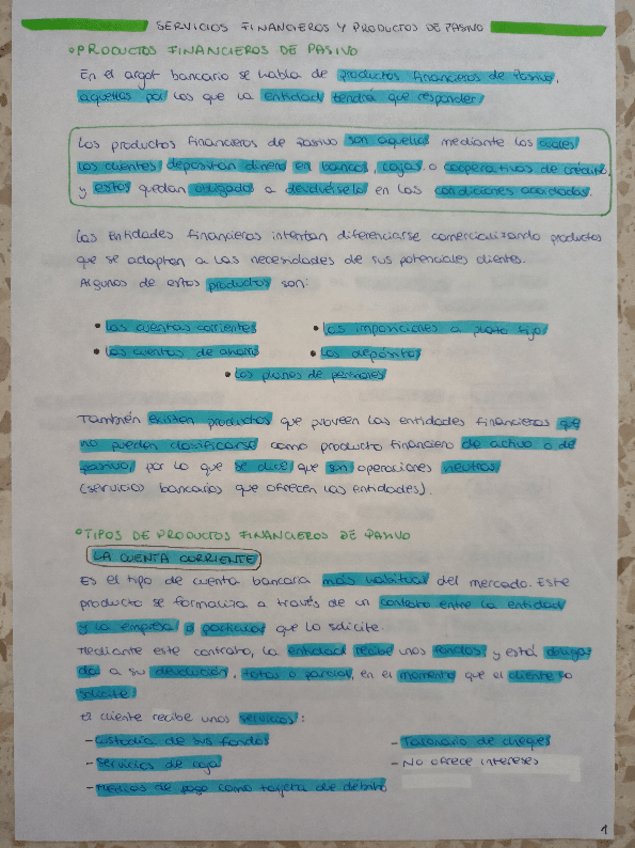 SERVICIOS FINANCIEROS Y PRODUCTOS DE PASIVO
PRODUCTOS FINANCIEROS DE PASIVO
En el argot bancario se habla de productos financieros de pasivo,
aquellos por los que la entidad tendrá que responder
Los productos financieros de pasivo son aquellos mediante los cuales
los clientes depositan dinero en bancos, cajas o cooperativas de crédito,
y estos quedan obligados a devolvérselo en las condiciones acordadas.
Las Entidades financieras intentan diferenciarse comercializando productos
que se adaptan a las necesidades de sus potenciales clientes.
Algunos de estos productos son:
• Las cuentas corrientes • Las imposiciones a plazo fijo
• Las cuentas de ahorro • Los depósitos
• Los planes de pensiones
También existen productos que proveen las entidades financieras que
no pueden clasificarse como producto financiero de activo o de
pasivo, por lo que se dice que son operaciones neutras
(servicios bancarios que ofrecen las entidades).
TIPOS DE PRODUCTOS FINANCIEROS DE PASIVO
LA CUENTA CORRIENTE
Es el tipo de cuenta bancaria más habitual del mercado. Este
producto se formaliza a través de un contrato entre la entidad
y la empresa o particular que lo solicite.
Mediante este contrato, la entidad recibe unos fondos y está obliga
da a su devolución, total o parcial, en el momento que el cliente lo
solicite.
El cliente recibe unos servicios:
- Custodia de sus fondos - Talonario de cheques
- Servicios de caja - No ofrece intereses
- Medios de pago como tarjeta de débito
1